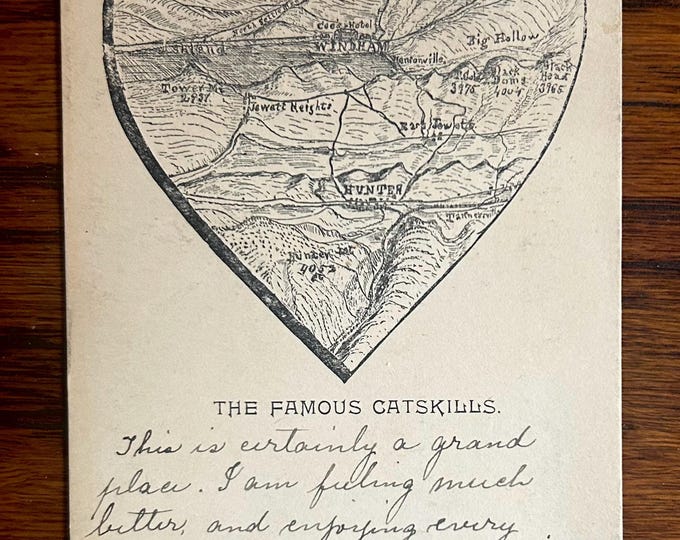 Cook's Hotel
Ashland
WINDHAM
Big Hollow
Hensonville
Tower Mt.
2937.
3975
Black
Dome
4004
Black
Head
3965
Jewett Heights.
East Jewett
HUNTER
Hunter Mt.
4052
THE FAMOUS CATSKILLS.
This is certainly a grand
place. I am feeling much
better, and enjoying every